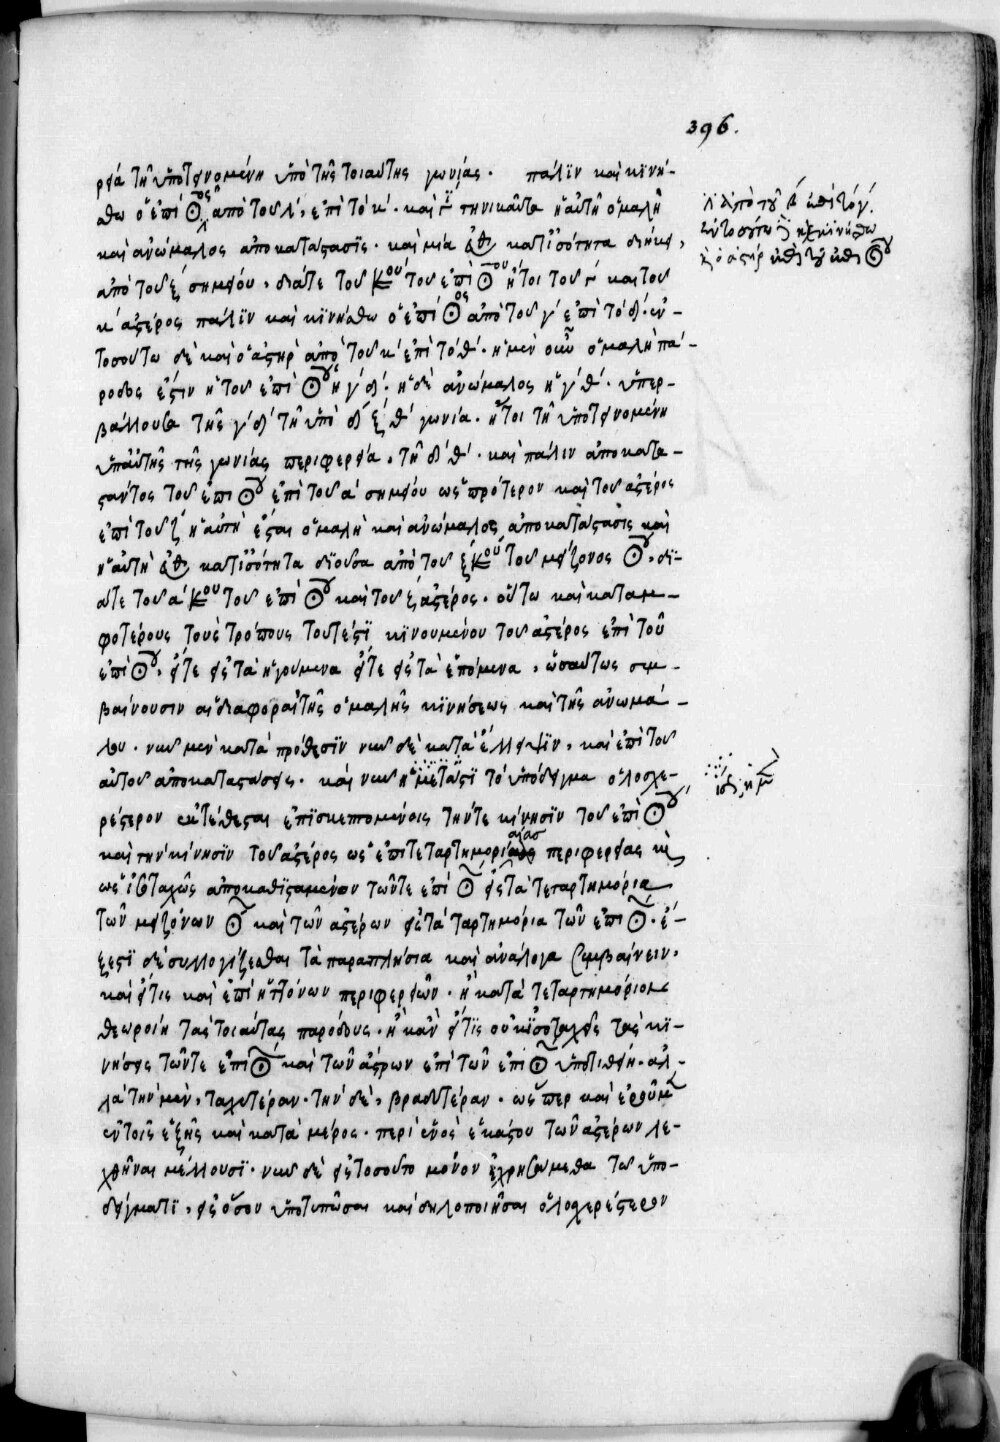 396.
ρεία τῆ ὑποτεινομένη ὑπὸ τῆς τοιαύτης γωνίας. πάλιν καὶ κινεί-
σθω ὁ ἐπί☉ος ἀπὸ τοῦ λ, ἐπὶ τὸ κ. καὶ τηνικαῦτα ἡ αὐτὴ ὁμαλὴ
καὶ ἀνώμαλος ἀποκατάστασις. καὶ μία εὐθεῖα κατ ἰσότητα διήκει,
ἀπὸ τοῦ ξ σημείου, διά τε τοῦ κου τοῦ ἐπί☉ου ἤτοι τοῦ γ καὶ τοῦ
κ ἀστέρος πάλιν καὶ κινείσθω ὁ ἐπί☉ος ἀπὸ τοῦ γ ἐπὶ τὸ δ. ἐν
τοσούτω δὲ καὶ ὁ ἀστὴρ ἀπὸ τοῦ κ ἐπὶ τὸ θ. ἡ μὲν οὖν ὁμαλὴ πά-
ροδος ἐστιν ἡ τοῦ ἐπί☉ου ἡ γ δ. ἡ δὲ ἀνώμαλος ἡ γ θ. ὑπερ-
βάλλουσα τῆς γ δ τῆ ὑπὸ δ ξ θ γωνία. ἤτοι τῆ ὑποτεινομένη
ὑπ αὐτῆς τῆς γωνίας περιφερεία, τῆ δ θ. καὶ πάλιν ἀποκατα-
στάντος τοῦ ἐπι☉ου ἐπὶ τοῦ α σημείου ὡς πρότερον καὶ τοῦ ἀστέρος
ἐπὶ τοῦ ζ ἡ αὐτὴ ἔσται ὁμαλὴ καὶ ἀνώμαλος ἀποκατάστασις καὶ
ἡ αὐτὴ εὐθεῖα κατ ἰσότητα διοῦσα ἀπὸ τοῦ ξ κου τοῦ μείζονος ☉ου, δι-
ά τε τοῦ α κου τοῦ ἐπί☉ου καὶ τοῦ ζ ἀστέρος. οὕτω καὶ κατ ἀμ-
φοτέρους τοὺς τρόπους τουτέστι κινουμένου τοῦ ἀστέρος ἐπὶ τοῦ
ἐπί☉ου, εἴτε εἰς τὰ ἡγούμενα εἴτε εἰς τὰ ἑπόμενα, ὡσαύτως συμ-
βαίνουσιν αἱ διαφοραὶ τῆς ὁμαλῆς κινήσεως καὶ τῆς ἀνωμά-
λου. νῦν μὲν κατὰ πρόθεσιν νῦν δὲ κατὰ ἔλλειψιν, καὶ ἐπὶ τοῦ
αὐτοῦ ἀποκαταστάσεις. καὶ νῦν ἡμετάστι τὸ ὑπόδειγμα ὁλοσχε-
ρέστερον ἐκτέθεσαι ἐπισκεπτομένοις τήν τε κίνησιν τοῦ ἐπί☉ου
καὶ τὴν κίνησιν τοῦ ἀστέρος ὡς ἐπὶ τεταρτημοριαίας περιφερείας καὶ
ὡς ἰσοταχῶς ἀποκαθισταμένων τῶν τε ἐπί☉ εἰς τὰ τεταρτημόρια
τῶν μειζόνων ☉ καὶ τῶν ἀστέρων εἰς τὰ ταρτημόρια τῶν ἐπι☉. ἔ-
ξεστι δὲ συλλογίζεσθαι τὰ παραπλήσια καὶ ἀνάλογα συμβαίνειν.
καὶ εἴ τις καὶ ἐπὶ ἡττόνων περιφερειῶν. ἢ κατὰ τεταρτημόριον
θεωροίη τὰς τοιαύτας παρόδους. ἢ κἂν εἴ τις οὐκ ἰσοταχεῖς τὰς κι-
νήσεις τῶν τε ἐπί☉ καὶ τῶν ἀστρων ἐπὶ τῶν ἐπι☉ ὑποτιθείη. ἀλ-
λὰ τὴν μὲν, ταχυτέραν. τὴν δὲ, βραδυτέραν. ὥσπερ καὶ ἐροῦμεν
ἐν τοῖς ἑξῆς καὶ κατὰ μέρος. περὶ ἑνὸς ἑκάστου τῶν ἀστέρων λε-
χθῆναι μέλλουσι. νῦν δὲ εἰς τοσοῦτο μόνον ἐχρησόμεθα τῶ ὑπο-
δείγματι, εἰς ὅσον ὑποτυπῶσαι καὶ δηλοποιῆσαι ὁλοχερέστερον
ἀπὸ τοῦ β ἐπὶ τὸ γ.
ἐν τοσούτω κινείσθω
ὁ ἀστὴρ ἐπὶ τοῦ ἐπι☉ου